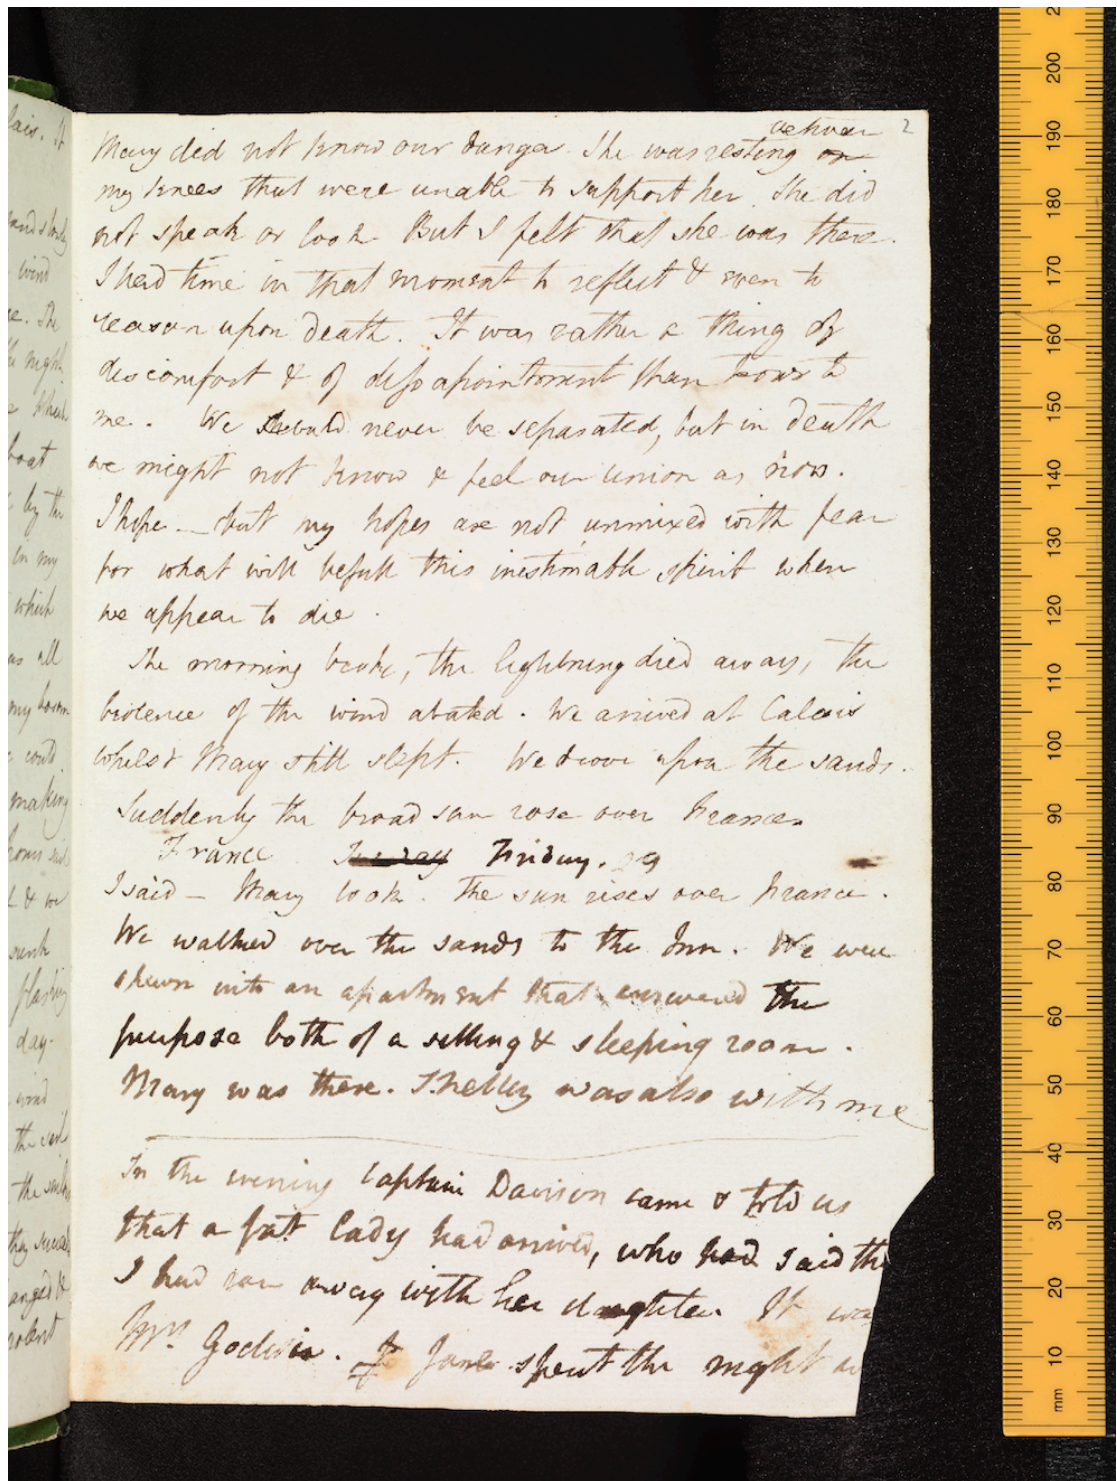 2
between
Mary did not know our danger. She was resting on
my knees that were unable to support her. She did
not speak or look But I felt that she was there.
I had time in that moment to reflect & even to
reason upon death. It was rather a thing of
discomfort & of disapointment than horror to
me. We should never be separated, but in death
we might not know & feel our union as now.
I hope — but my hopes are not unmixed with fear
for what will befall this inestimable spirit when
we appear to die.
The morning broke, the lightning died away, the
violence of the wind abated. We arrived at Calais
whilst Mary still slept. We drove upon the sands.
Suddenly the broad sun rose over France.
France Friday. 29
I said — Mary look. The sun rises over France.
We walked over the sands to the Inn. We were
shewn into an apartment that answered the
purpose both of a sitting & sleeping room.
Mary was there. Shelley was also with me
In the evening Captain Davison came & told us
that a fat lady had arrived, who had said tha
I had ran away with her daughter. It wa
Mrs. Godwin. Jane spent the night
lais. It
wind
. The
night
boat
by the
in my
which
as all
my bosom
could
making
hours
& we
sunk
flashing
day.
wind
the sail
the
they
anged &
olent